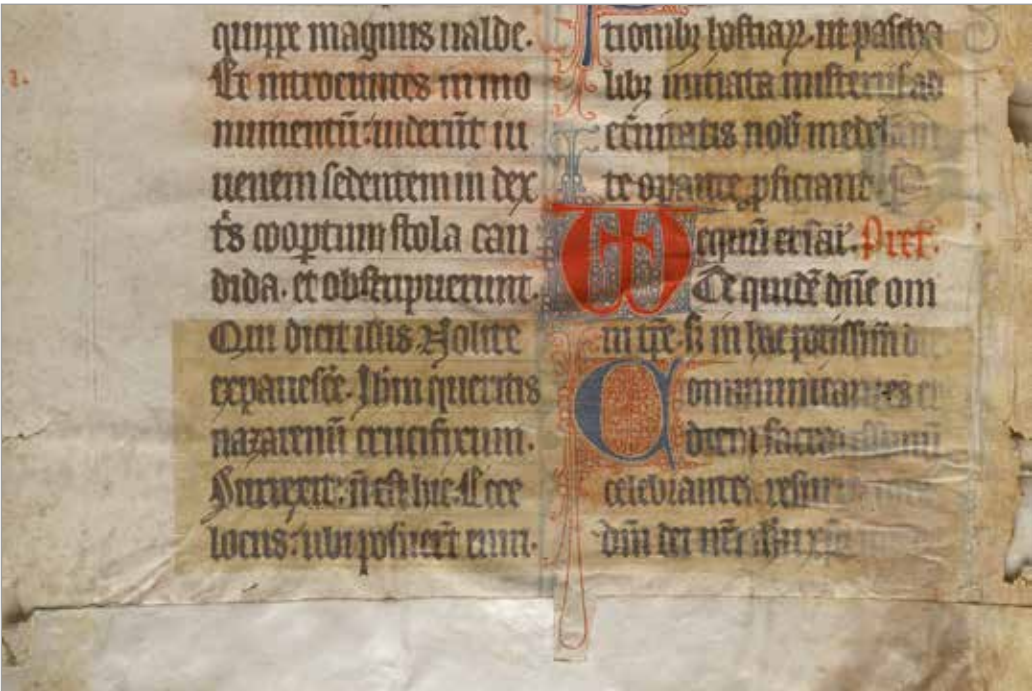 quippe magnus ualde.
Et introeuntes in mo
numentū: uiderūt iu
uenem sedentem in dex
t̄s coopertum stola can
dida. et obstupuerunt.
Qui dicit illis Nolite
expauesc̄e. Ihm queritis
nazarenū crucifixum.
Surrexit: n̄ est hic. Ecce
locus: ubi posuer̄t eum.
tionibꝫ hostiaꝝ. ut pascha
libꝫ initiata misteriis ad
et̄nitatis nob̄ medelam
te oꝑante ꝓficiant.
equū et sal. Pref.
Te quidē dn̄e om
ni tp̄e. sꝫ in hac potissim̄
Communicantes et
diem sacratissimū
celebrantes
dn̄i dei nr̄i ihu xp̄i